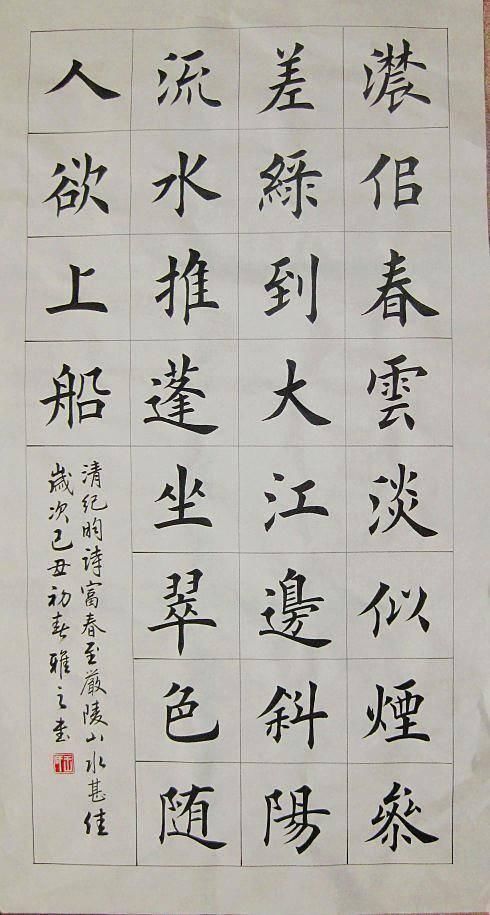 濃佀春雲淡似煙參
差綠到大江邊斜陽
流水推蓬坐翠色随
人欲上船
清纪昀詩富春至嚴陵山水甚佳
歲次己丑初春雅之書